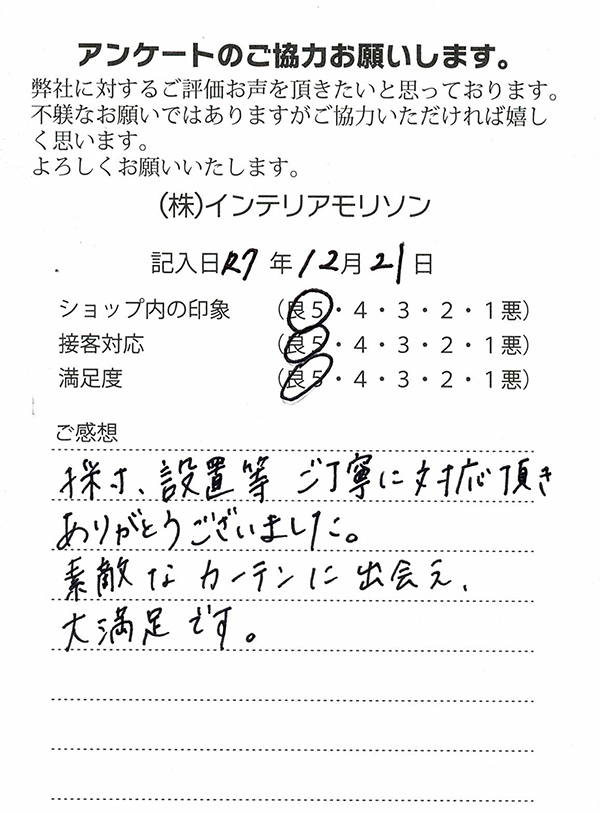 アンケートのご協力お願いします。
弊社に対するご評価お声を頂きたいと思っております。
不躾なお願いではありますがご協力いただければ嬉し
く思います。
よろしくお願いいたします。
(株)インテリアモリソン
記入日R7年12月21日
ショップ内の印象 (良5・4・3・2・1悪)
接客対応 (良5・4・3・2・1悪)
満足度 (良5・4・3・2・1悪)
ご感想
採寸、設置等 ご丁寧に対応頂き
ありがとうございました。
素敵なカーテンに出会え、
大満足です。